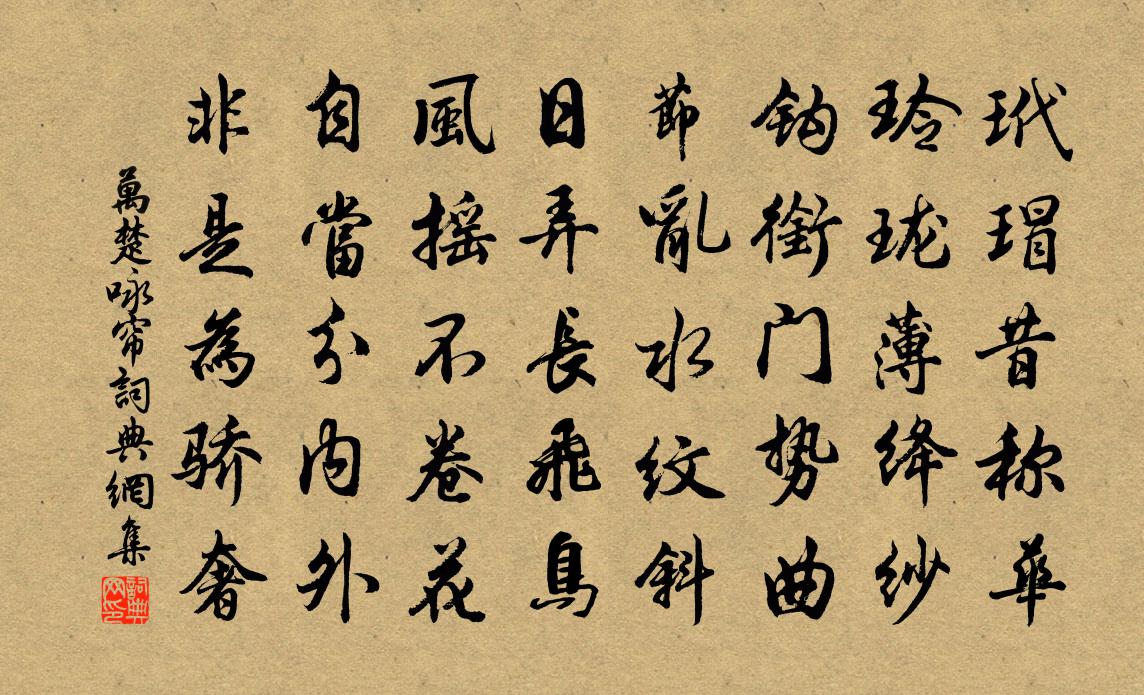 玳瑁昔称華
玲珑薄绛紗
鈎銜门势曲
節亂水紋斜
日弄長飛鳥
風摇不卷花
自當分内外
非是為骄奢
萬楚咏帘詞典網集
詞典网印